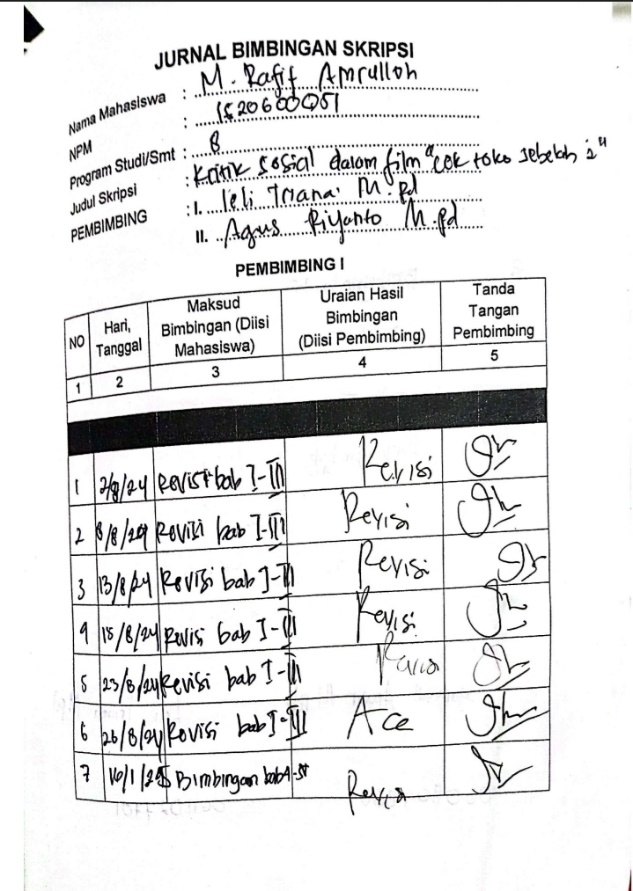 JURNAL BIMBINGAN SKRIPSI
Nama Mahasiswa : M. Rafif Amrulloh
NPM : 1520600051
Program Studi/Smt : 8
Judul Skripsi : Kritik sosial dalam film "cek toko sebelah 2"
PEMBIMBING : I. leli Triana M.pd
II. Agus Riyanto M.pd
PEMBIMBING I
NO Hari, Tanggal Maksud Bimbingan (Diisi Mahasiswa) Uraian Hasil Bimbingan (Diisi Pembimbing) Tanda Tangan Pembimbing
1 2 3 4 5
1 2/8/24 Revisi bab I-III Revisi
2 8/8/24 Revisi bab I-III Revisi
3 13/8/24 Revisi bab I-III Revisi
4 15/8/24 Revisi bab I-III Revisi
5 23/8/24 Revisi bab I-III Revisi
6 26/8/24 Revisi bab I-III Acc
7 16/1/25 Bimbingan bab 4-5 Revisi